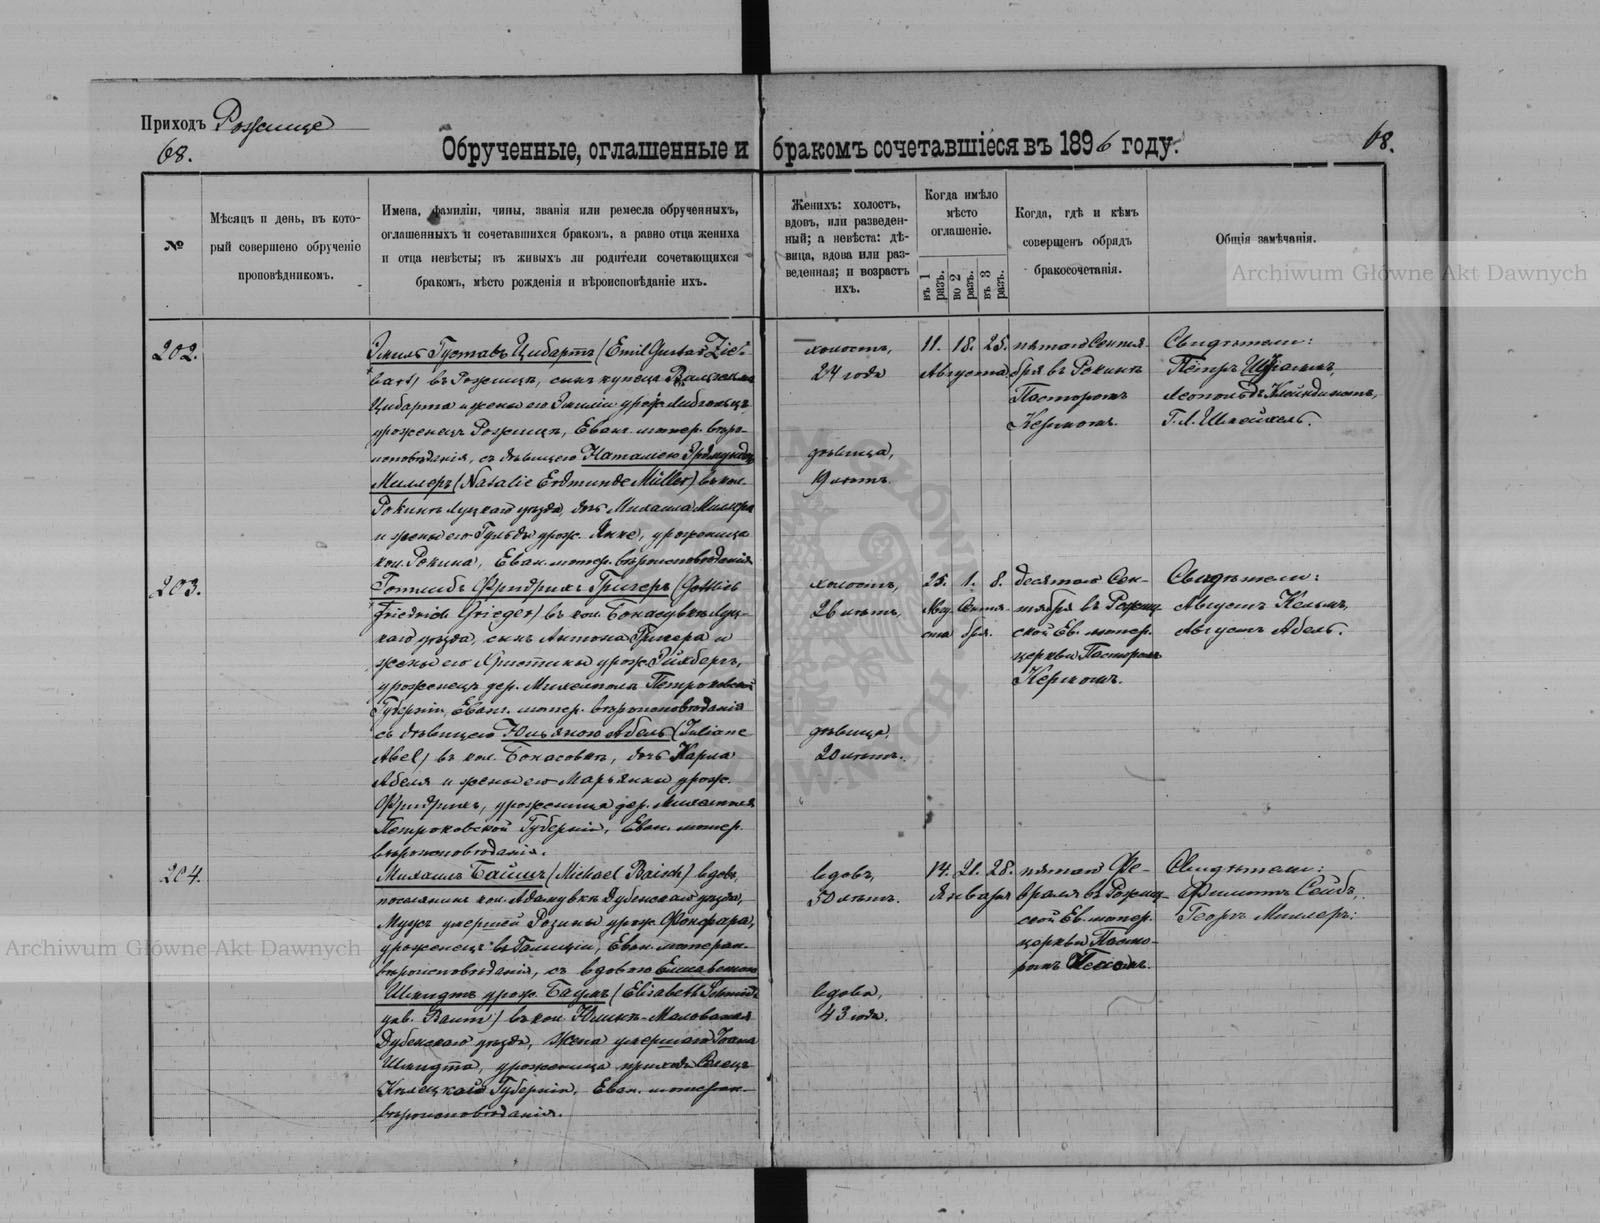 Приходъ Рожище
68.
Обрученные, оглашенные и бракомъ сочетавшіеся въ 1896 году.
68.
№
Мѣсяцъ и день, въ кото-
рый совершено обрученіе
проповѣдникомъ.
Имена, фамиліи, чины, званія или ремесла обрученныхъ,
оглашенныхъ и сочетавшихся бракомъ, а равно отца жениха
и отца невѣсты; въ живыхъ ли родители сочетающихся
бракомъ, мѣсто рожденія и вѣроисповѣданіе ихъ.
Женихъ: холостъ,
вдовъ, или разведен-
ный; а невѣста: дѣ-
вица, вдова или раз-
веденная; и возрастъ
ихъ.
Когда имѣло
мѣсто
оглашеніе.
въ 1 разъ.
во 2 разъ.
въ 3 разъ.
Когда, гдѣ и кѣмъ
совершенъ обрядъ
бракосочетанія.
Общія замѣчанія.
Archiwum Główne Akt Dawnych
202.
Эмиль Густавъ Цибартъ (Emil Gustav Zie-
bart) въ Рожищѣ, сынъ купца
Цибарта и жены его Эмиліи урож.
уроженецъ Рожища, Еванг. лютер. вѣро-
исповѣданія, съ дѣвицею Наталіею Эрдмундою
Миллеръ (Natalie Erdmunde Müller) въ кол.
Рокинѣ Луцкаго уѣзда, дочь Михаила Миллера
и жены его Гульды урож. Янке, уроженица
кол. Рокина, Еван. лютер. вѣроисповѣданія
холостъ,
24 года
дѣвица,
19 лѣтъ.
11. 18. 25.
Августа
пятаго Сентя-
бря въ Рокинѣ
Пасторомъ
Керномъ.
Свидѣтели:
Петръ
Леопольдъ
Г. Л.
203.
Готлибъ Фридрихъ Григеръ (Gottlieb
Friedrich Grieger) въ кол. Луц-
каго уѣзда, сынъ Антона Григера и
жены его Христины урож.
уроженецъ дер. Петроковской
Губерніи, Еванг. лютер. вѣроисповѣданія
съ дѣвицею Юльяною Абель (Juliane
Abel) въ кол. дочь Карла
Абеля и жены его Марьянны урож.
Фридрихъ, уроженица дер.
Петроковской Губерніи, Еван. лютер.
вѣроисповѣданія.
холостъ,
26 лѣтъ,
дѣвица,
20 лѣтъ.
25. 1. 8.
Авгу- Сентя-
ста бря.
десятаго Сен-
тября въ Рожищ-
ской Ев. лютер.
церкви Пасторомъ
Керномъ.
Свидѣтели:
Августъ Кельмъ,
Августъ Абель.
204.
Михаилъ Байшъ (Michael Baisch) вдовъ,
поселянинъ кол. Адамувкѣ Дубенскаго уѣзда,
Мужъ умершей Розины урож.
уроженецъ въ Галиціи, Еван. лютеран.
вѣроисповѣданія, съ вдовою Елисаветою
Шмидтъ урож. Баумъ (Elisabeth Schmidt
geb. Baum) въ кол.
Дубенскаго уѣзда, Жена умершаго Іоана
Шмидта, уроженица прихода
Кѣлецкой Губерніи, Еван. лютеран.
вѣроисповѣданія.
вдовъ,
50 лѣтъ.
вдова,
43 года.
14. 21. 28.
Января
пятаго Фе-
враля въ Рожищ-
ской Ев. лютер.
церкви Пасто-
ромъ
Свидѣтели:
Филиппъ Сейбъ,
Георгъ Миллеръ:
Archiwum Główne Akt Dawnych